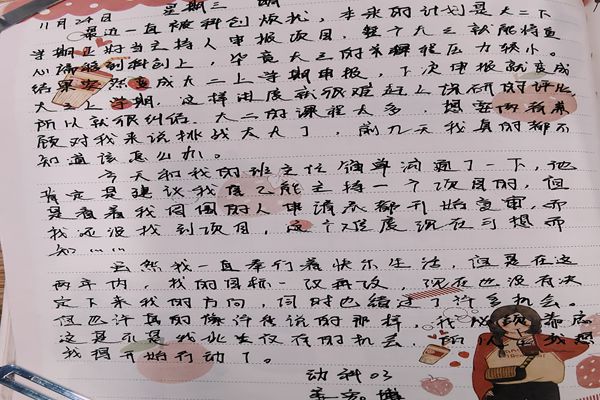 11月24日 星期三 晴
最近一直被科创烦扰，本来的计划是大二下
学期正好当主持人申报项目，整个大三就能将重
心偏移到科创上，毕竟大三的课程压力较小。
结果突然变成大二上学期申报，下次申报就变成
大三上学期，这样进度就很难赶上保研的评比，
所以就很纠结，大二的课程太多，想要两者兼
顾对我来说挑战太大了，前几天我真的都不
知道该怎么办。
今天和我的班主任简单沟通了一下，他
肯定是建议我尽可能主持一个项目的，但
是看着我周围的人申请表都开始复审，而
我还没找到项目，这个难度就在可想而
知……
虽然我一直奉行着快乐生活，但是在这
两年内，我的目标一改再改，现在也没有决
定下来我的方向，同时也错过了许多机会。
但也许真的像许传说的那样，
这是不是我此生仅存的机会，
我得开始行动了。
动科03